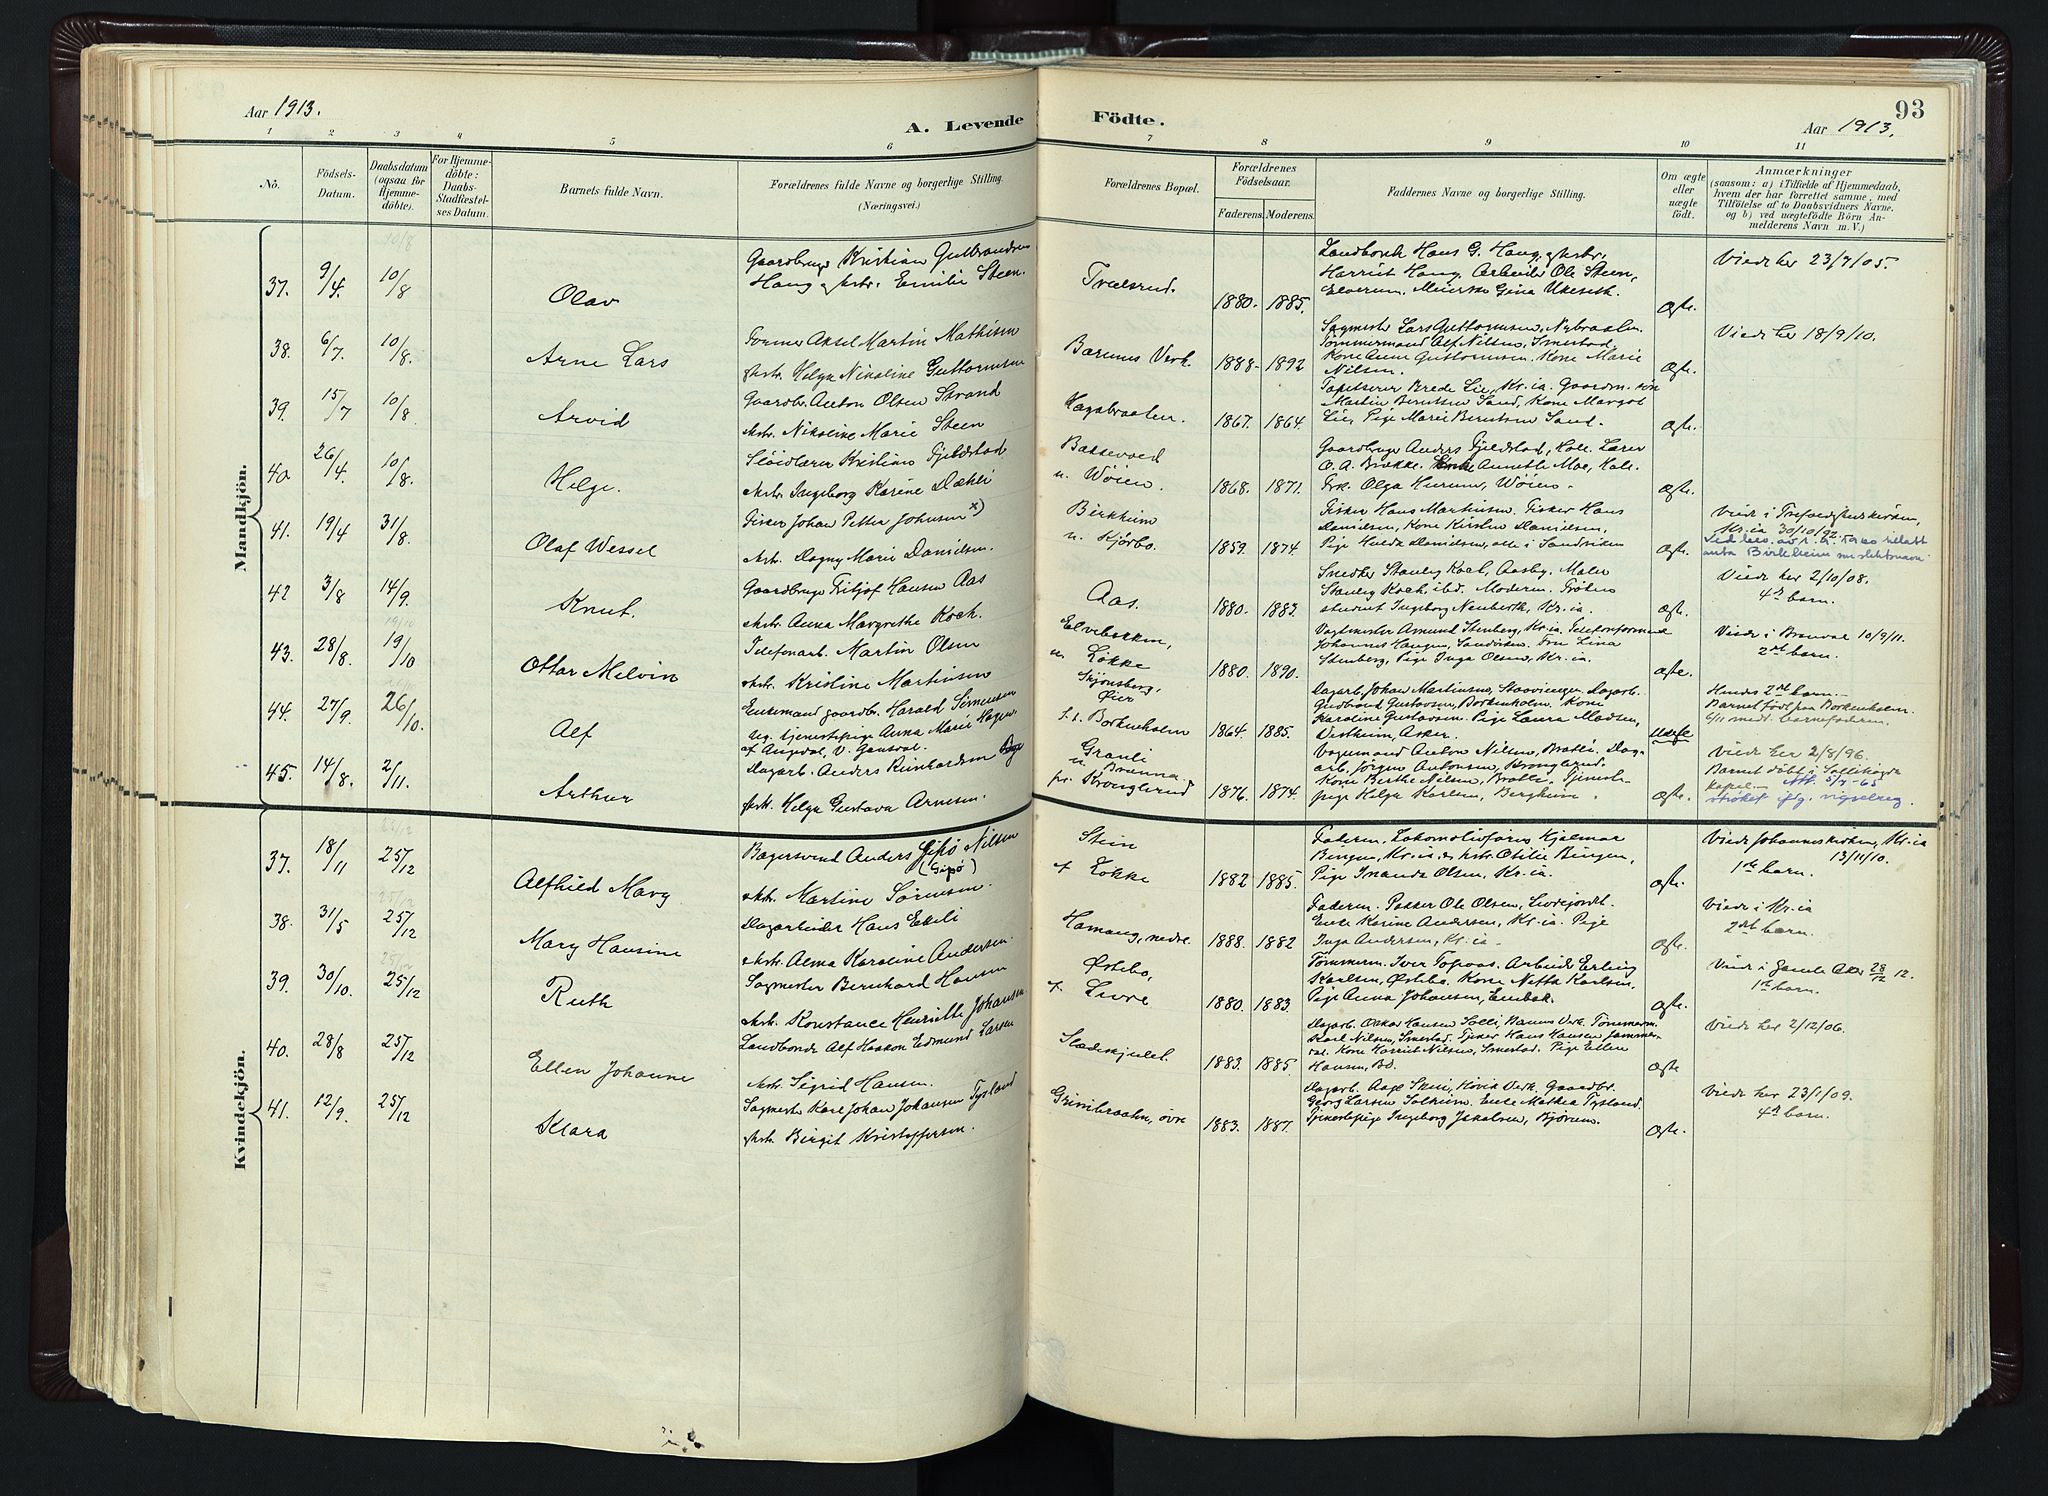 Aar 1913.
A. Levende Födte.
93
Aar 1913.
1 2 3 4 5 6 7 8 9 10 11
No.
Födsels-Datum.
Daabsdatum (ogsaa for Hjemmedöbte).
For Hjemmedöbte: Daabs-Stadfæstelses Datum.
Barnets fulde Navn.
Forældrenes fulde Navne og borgerlige Stilling.
(Næringsvei.)
Forældrenes Bopæl.
Forældrenes Födselsaar.
Faderens. Moderens.
Faddernes Navne og borgerlige Stilling.
Om ægte eller uægte födt.
Anmærkninger
(saasom: a) i Tilfælde af Hjemmedaab, hvem der har forrettet samme, med Tilföielse af to Daabsvidners Navne. og b) ved uægtefödte Börn Anmelderens Navn m. V.)
Mandkjön.
10/8
37. 9/4. 10/8 Olav
Gaardbruger Kristian Gulbrandsen
Haug og Hstr. Emilie Steen.
1880. 1885.
Landbruk Hans G. Haug, og Hstr.
Harriet Haug, Arbeider Ole Steen,
Ægte.
Viede her 23/7/05.
38. 6/7. 10/8. Arne Lars
Former Aksel Martin Mathisen
Hstr. Helga Nikoline Guttormsen
Bærums Verk. 1888- 1892
Sagmester Lars Guttormsen, Nybraaten.
Tømmermand Alf Nilsen, Smestad,
Kone Anne Guttormsen. Kone Marie
Nilsen.
Ægte.
Viede her 18/9/10.
39. 15/7 10/8. Arvid
Gaardbr. Anton Olsen Strand
Hstr. Nikoline Marie Steen
Hagabraaten. 1867. 1864.
Tapetserer Brede Lie, Kr.ia. Gaardm.
Martin Berntsen Sand, Kone Margot
Lie, Pige Marie Berntsen Sand.
Ægte.
40. 26/4. 10/8. Helge.
Slöidlærer Kristian Fjeldstad
Hstr. Ingeborg Karine Dæhli
n. Wøien. 1868. 1871.
Gaardbruger Anders Fjeldstad, Hole. Lærer
O. A. Brække. Enke Annette Moe, Hole.
Frk. Olga Hurum, Wøien.
Ægte.
41. 19/4 31/8. Olaf Wessel
Fisker Johan Petter Johnsen x)
Hstr. Dagny Marie Danielsen.
Birkheim
n. Kjørbo. 1859. 1874.
Fisker Hans Martinsen. Fisker Hans
Danielsen, Kone Kirsten Danielsen,
Pige Hulda Danielsen, alle i Sandviken
Ægte.
Viede i Trefoldighedskirken,
Kr.ia 30/10/92.
anta Birkheim som slektsnavn.
42 3/8 14/9. Knut.
Gaardbruger Fritjof Hansen Aas
Hstr. Anna Margrethe Koch.
Aas. 1880. 1883.
Snedker Stanley Koch, Aasby. Maler
Stanley Koch, ibd. Moderen. Frøken
student Ingeborg Neuberth, Kr.ia.
Ægte.
Viede her 2/10/08.
4de barn.
19/10
43. 28/8. 19/10 Ottar Melvin
Telefonarb. Martin Olsen
Hstr. Kristine Martinsen
Elvebakken,
n. Løkke 1880. 1890.
Vagtmester Amund Stenberg, Kr.ia. Telefonformand
Johannes Haugen, Sandviken. Fru Lina
Stenberg, Pige Inga Olsen, Kr.ia.
Ægte.
Viede i Brandval 10/9/11.
2det barn.
44. 27/9. 26/10. Alf
Enkemand gaardbr. Harald Simensen
og tjenestepige Anna Marie Hagen
Skjønsberg,
Øier
f. i. Borkenholm 1864. 1885.
Dagarb. Johan Martinsen, Dagarb.
Gudbrand Gustavsen, Borkenholm. Kone
Karoline Gustavsen. Pige Laura Madsen,
Vestheim, Asker.
Uægte
Hendes 2det barn.
Barnet født paa Borkenholm.
6/11 medt. barnefaderen.
45. 14/8. 2/11. Arthur
Dagarb. Anders Reinhardsen
Hstr. Helga Gustava Arnesen.
Granli
n. Branna. 1876. 1874.
Vognmand Anton Nilsen, Bratli. Dag-
arb. Jørgen Antonsen, Kronglerud.
Kone Berthe Nilsen, Bratli. Tjenest-
pige Helga Karlsen, Bergheim.
Ægte.
Viede her 2/8/96.
Barnet döbt i Sollihøgda
kapel.
5/7-65
strøket ifg. vigselreg.
Kvindekjön.
25/12
37. 18/11 25/12 Alfhild Mary
Bagersvend Anders Gipø Nilsen
(Gipø)
Hstr. Martine Sørensen.
Stein
+ Løkke 1882 1885.
Faderen. Lokomotivfører Hjalmar
Bingen, Kr.ia og Hstr. Otilie Bingen,
Pige Inanda Olsen, Kr.ia.
Ægte.
Viede Johanneskirken, Kr.ia
13/11/10.
1ste barn.
25/12
38. 31/5 25/12 Mary Hansine
Dagarbeider Hans Ekeli
Hstr. Alma Karoline Andersen.
Hamang, nedre. 1888. 1882
Faderen. Pakker Ole Olsen,
Enke Karine Andersen, Kr.ia. Pige
Inga Andersen, Kr.ia.
Ægte.
Viede i Kr.ia
2det barn.
25/12
39. 30/10. 25/12 Ruth
Sagmester Bernhard Hansen
Hstr. Konstance Henriette Johansen.
Østebo, 1880. 1883.
Tømmerm. Iver Topaas. Arbeider Erling
Karlsen, Østebo. Kone Netta Karlsen.
Pige Anna Johansen,
Ægte.
Viede i Gamle Aker 28/12 12.
1ste barn.
40. 28/8 25/12 Ellen Johanne
Landbonde Alf Haakon Edmund Larsen
Hstr. Sigrid Hansen.
1883. 1885.
Dagarb. Oskar Hansen Solli, Bærums Verk. Tømmerm.
Karl Nilsen, Smestad. Tjener Hans Hansen
Kone Harriet Nilsen, Smestad. Pige Ellen
Hansen,
Ægte
Viede her 2/12/06.
41. 12/9. 25/12 Klara
Sagmester Karl Johan Johansen Tysland
Hstr. Birgit Kristoffersen.
Grinibraaten, øvre 1883. 1887.
Dagarb. Aage Høvik Verk. Gaardbr.
Georg Larsen Solheim. Enke Mathea Tysland.
Tjenestepige Ingeborg Jakobsen, Bjørum.
Ægte.
Viede her 23/1/09.
4de barn.